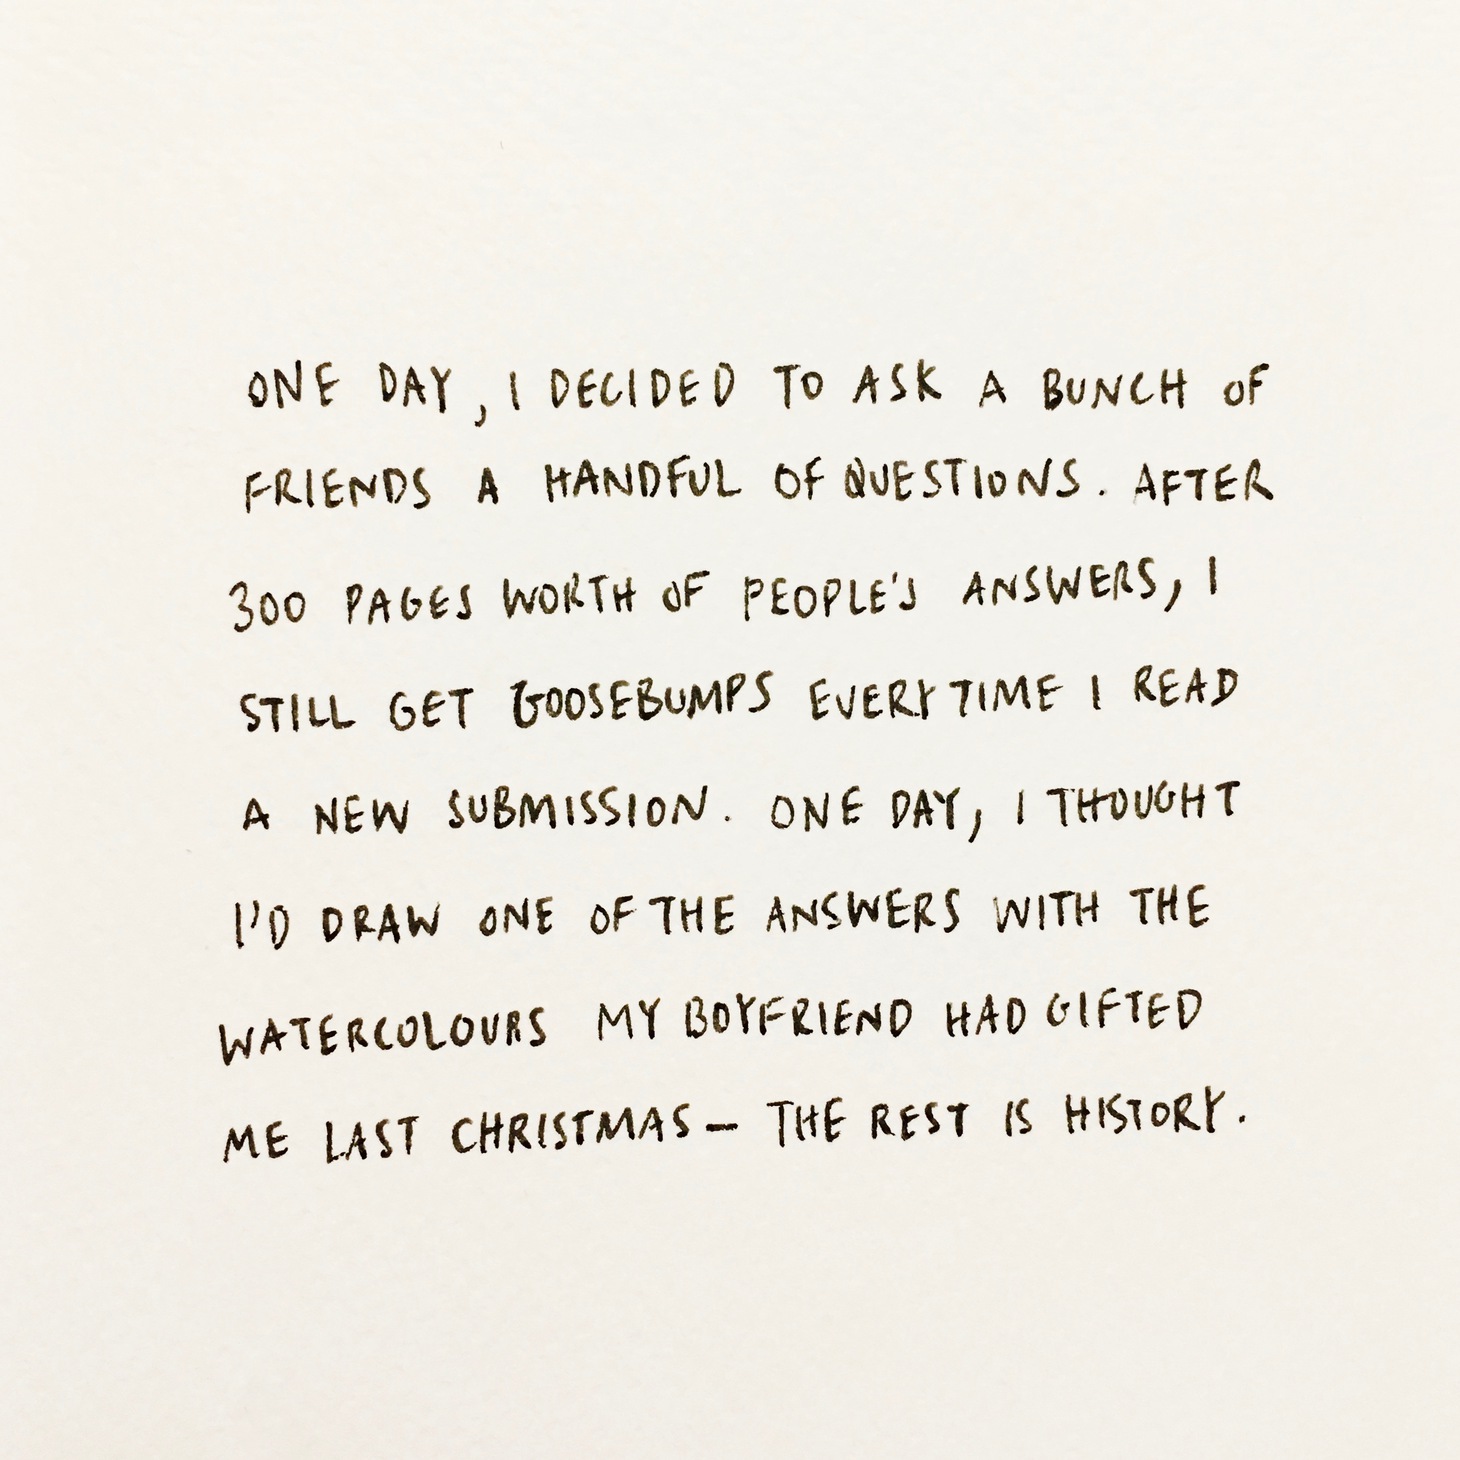 ONE DAY, I DECIDED TO ASK A BUNCH OF
FRIENDS A HANDFUL OF QUESTIONS. AFTER
300 PAGES WORTH OF PEOPLE'S ANSWERS, I
STILL GET GOOSEBUMPS EVERYTIME I READ
A NEW SUBMISSION. ONE DAY, I THOUGHT
I'D DRAW ONE OF THE ANSWERS WITH THE
WATERCOLOURS MY BOYFRIEND HAD GIFTED
ME LAST CHRISTMAS — THE REST IS HISTORY.